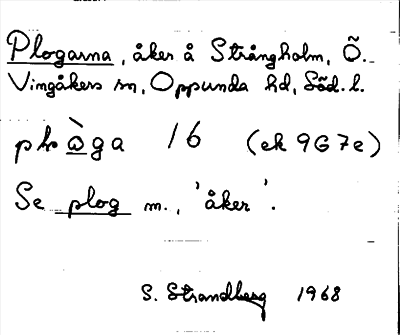 Plogarna, åker å Strångholm, Ö.
Vingåkers sn, Oppunda hd, Söd. l.
plo̊̀ga 16 (ek 9G7e)
Se plog m., 'åker'.
S. Strandberg 1968